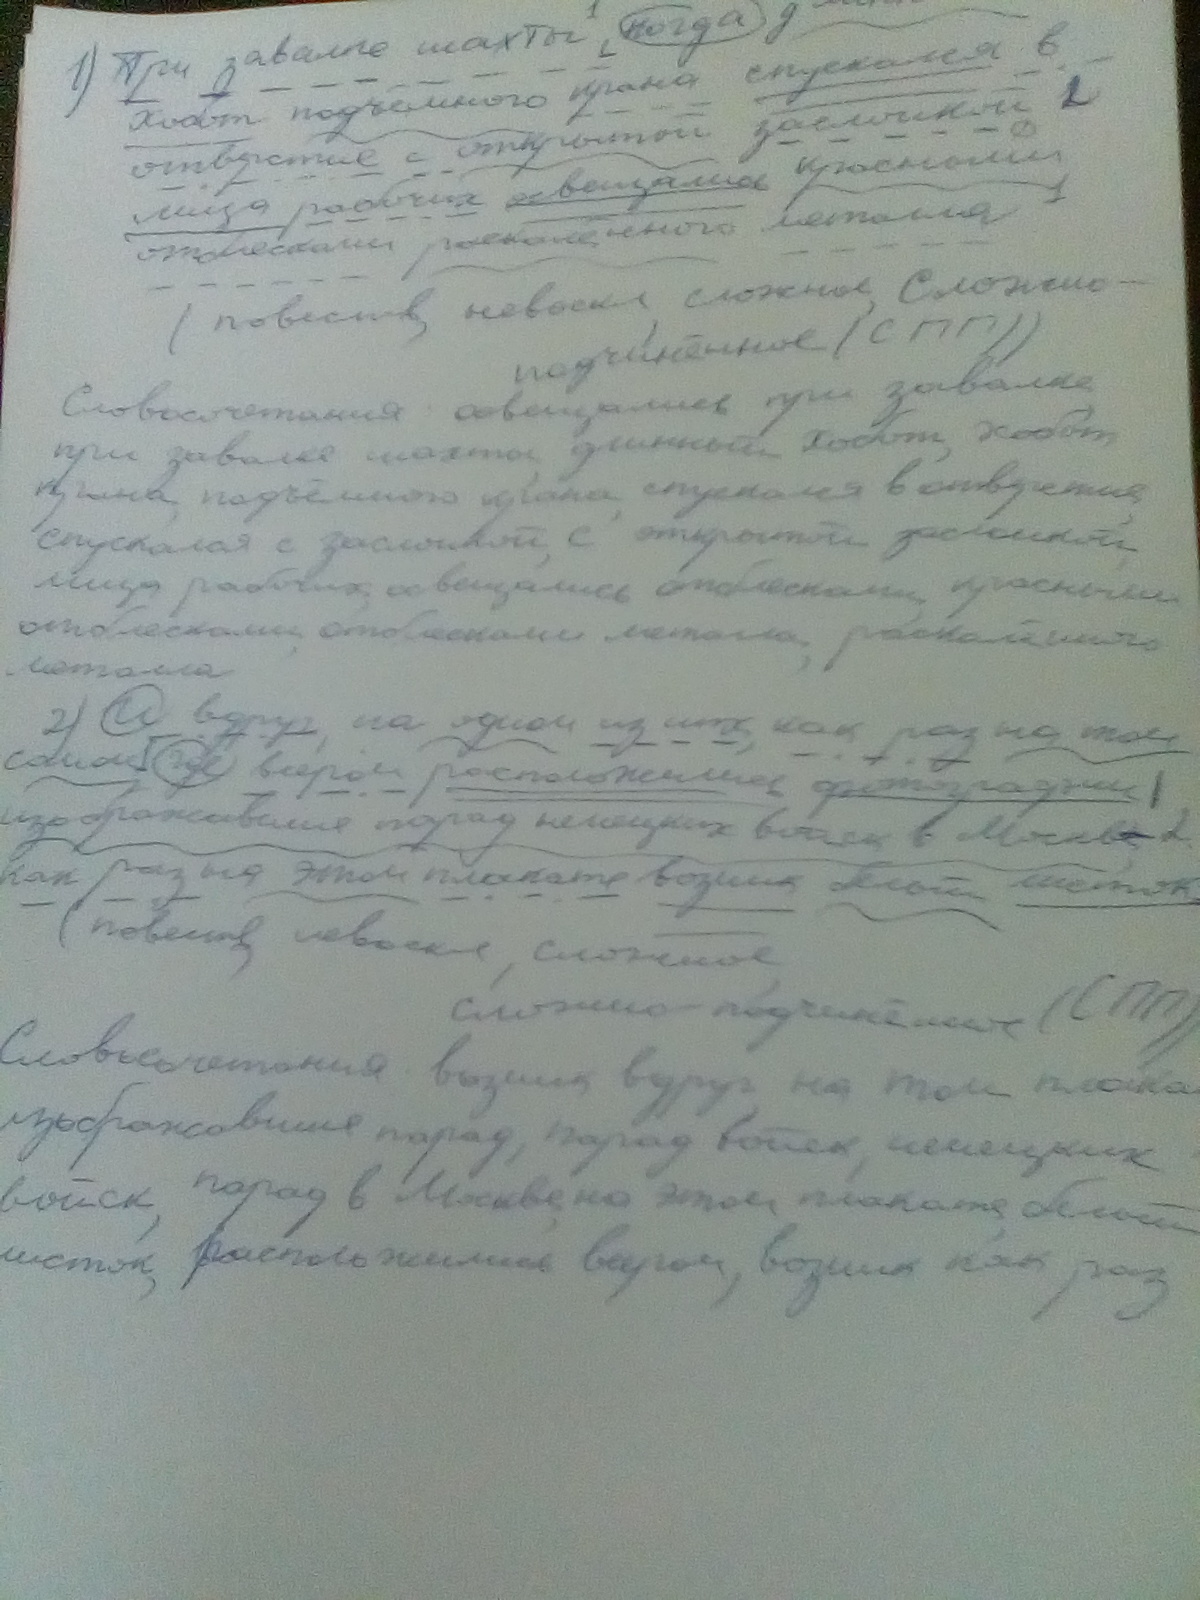 1) При завалке шахты, когда
хобот подъёмного крана спускался в
отверстие с открытой заслонкой
лица рабочих освещались красными
отблесками раскалённого металла
(повеств, невоскл, сложное, Сложно-
подчинённое (СПП))
Словосочетания: освещались при завалке,
при завалке шахты, длинный хобот, хобот
крана, подъёмного крана, спускался в отверстие,
спускался с заслонкой, с открытой заслонкой,
лица рабочих, освещались отблесками, красными
отблесками, отблесками металла, раскалённого
металла
2) И вдруг, на одном из них, как раз на том
самом где веером расположились фотографии
изображавшие парад немецких войск в Москве,
как раз на этом плакате возник белый листок,
(повеств, невоскл, сложное
сложно-подчинённое (СПП)
Словосочетания: возник вдруг, на том плака
изображавшие парад, парад войск, немецких
войск, парад в Москве, на этом плакате, белый
листок, расположились веером, возник как раз